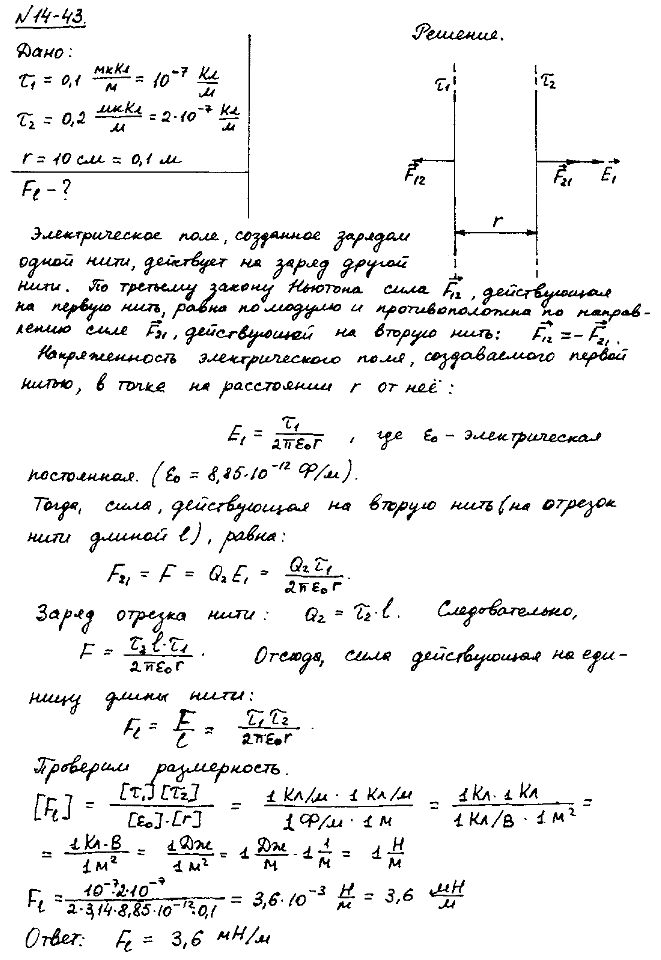 №14-43.
Дано:
τ₁ = 0,1 мкКл/м = 10⁻⁷ Кл/м
τ₂ = 0,2 мкКл/м = 2·10⁻⁷ Кл/м
r = 10 см = 0,1 м
Fₗ - ?
Решение.
τ₁ τ₂
F⃗₁₂ F⃗₂₁ E₁
r
Электрическое поле, созданное зарядом
одной нити, действует на заряд другой
нити. По третьему закону Ньютона сила F⃗₁₂, действующая
на первую нить, равна по модулю и противоположна по направ-
лению силе F⃗₂₁, действующей на вторую нить: F⃗₁₂ = -F⃗₂₁.
Напряженность электрического поля, создаваемого первой
нитью, в точке на расстоянии r от неё:
E₁ = τ₁/2πε₀r , где ε₀ - электрическая
постоянная. (ε₀ = 8,85·10⁻¹² Ф/м).
Тогда, сила, действующая на вторую нить (на отрезок
нити длиной l), равна:
F₂₁ = F = Q₂E₁ = Q₂τ₁/2πε₀r.
Заряд отрезка нити: Q₂ = τ₂·l. Следовательно,
F = τ₂l·τ₁/2πε₀r. Отсюда, сила действующая на еди-
ницу длины нити:
Fₗ = F/l = τ₁τ₂/2πε₀r.
Проверим размерность.
[Fₗ] = [τ₁][τ₂]/[ε₀]·[r] = 1 Кл/м · 1 Кл/м / 1 Ф/м · 1 м = 1 Кл · 1 Кл / 1 Кл/В · 1 м² =
= 1 Кл·В/1 м² = 1 Дж/1 м² = 1 Дж/м · 1 1/м = 1 Н/м
Fₗ = 10⁻⁷·2·10⁻⁷/2·3,14·8,85·10⁻¹²·0,1 = 3,6·10⁻³ Н/м = 3,6 мН/м
Ответ: Fₗ = 3,6 мН/м